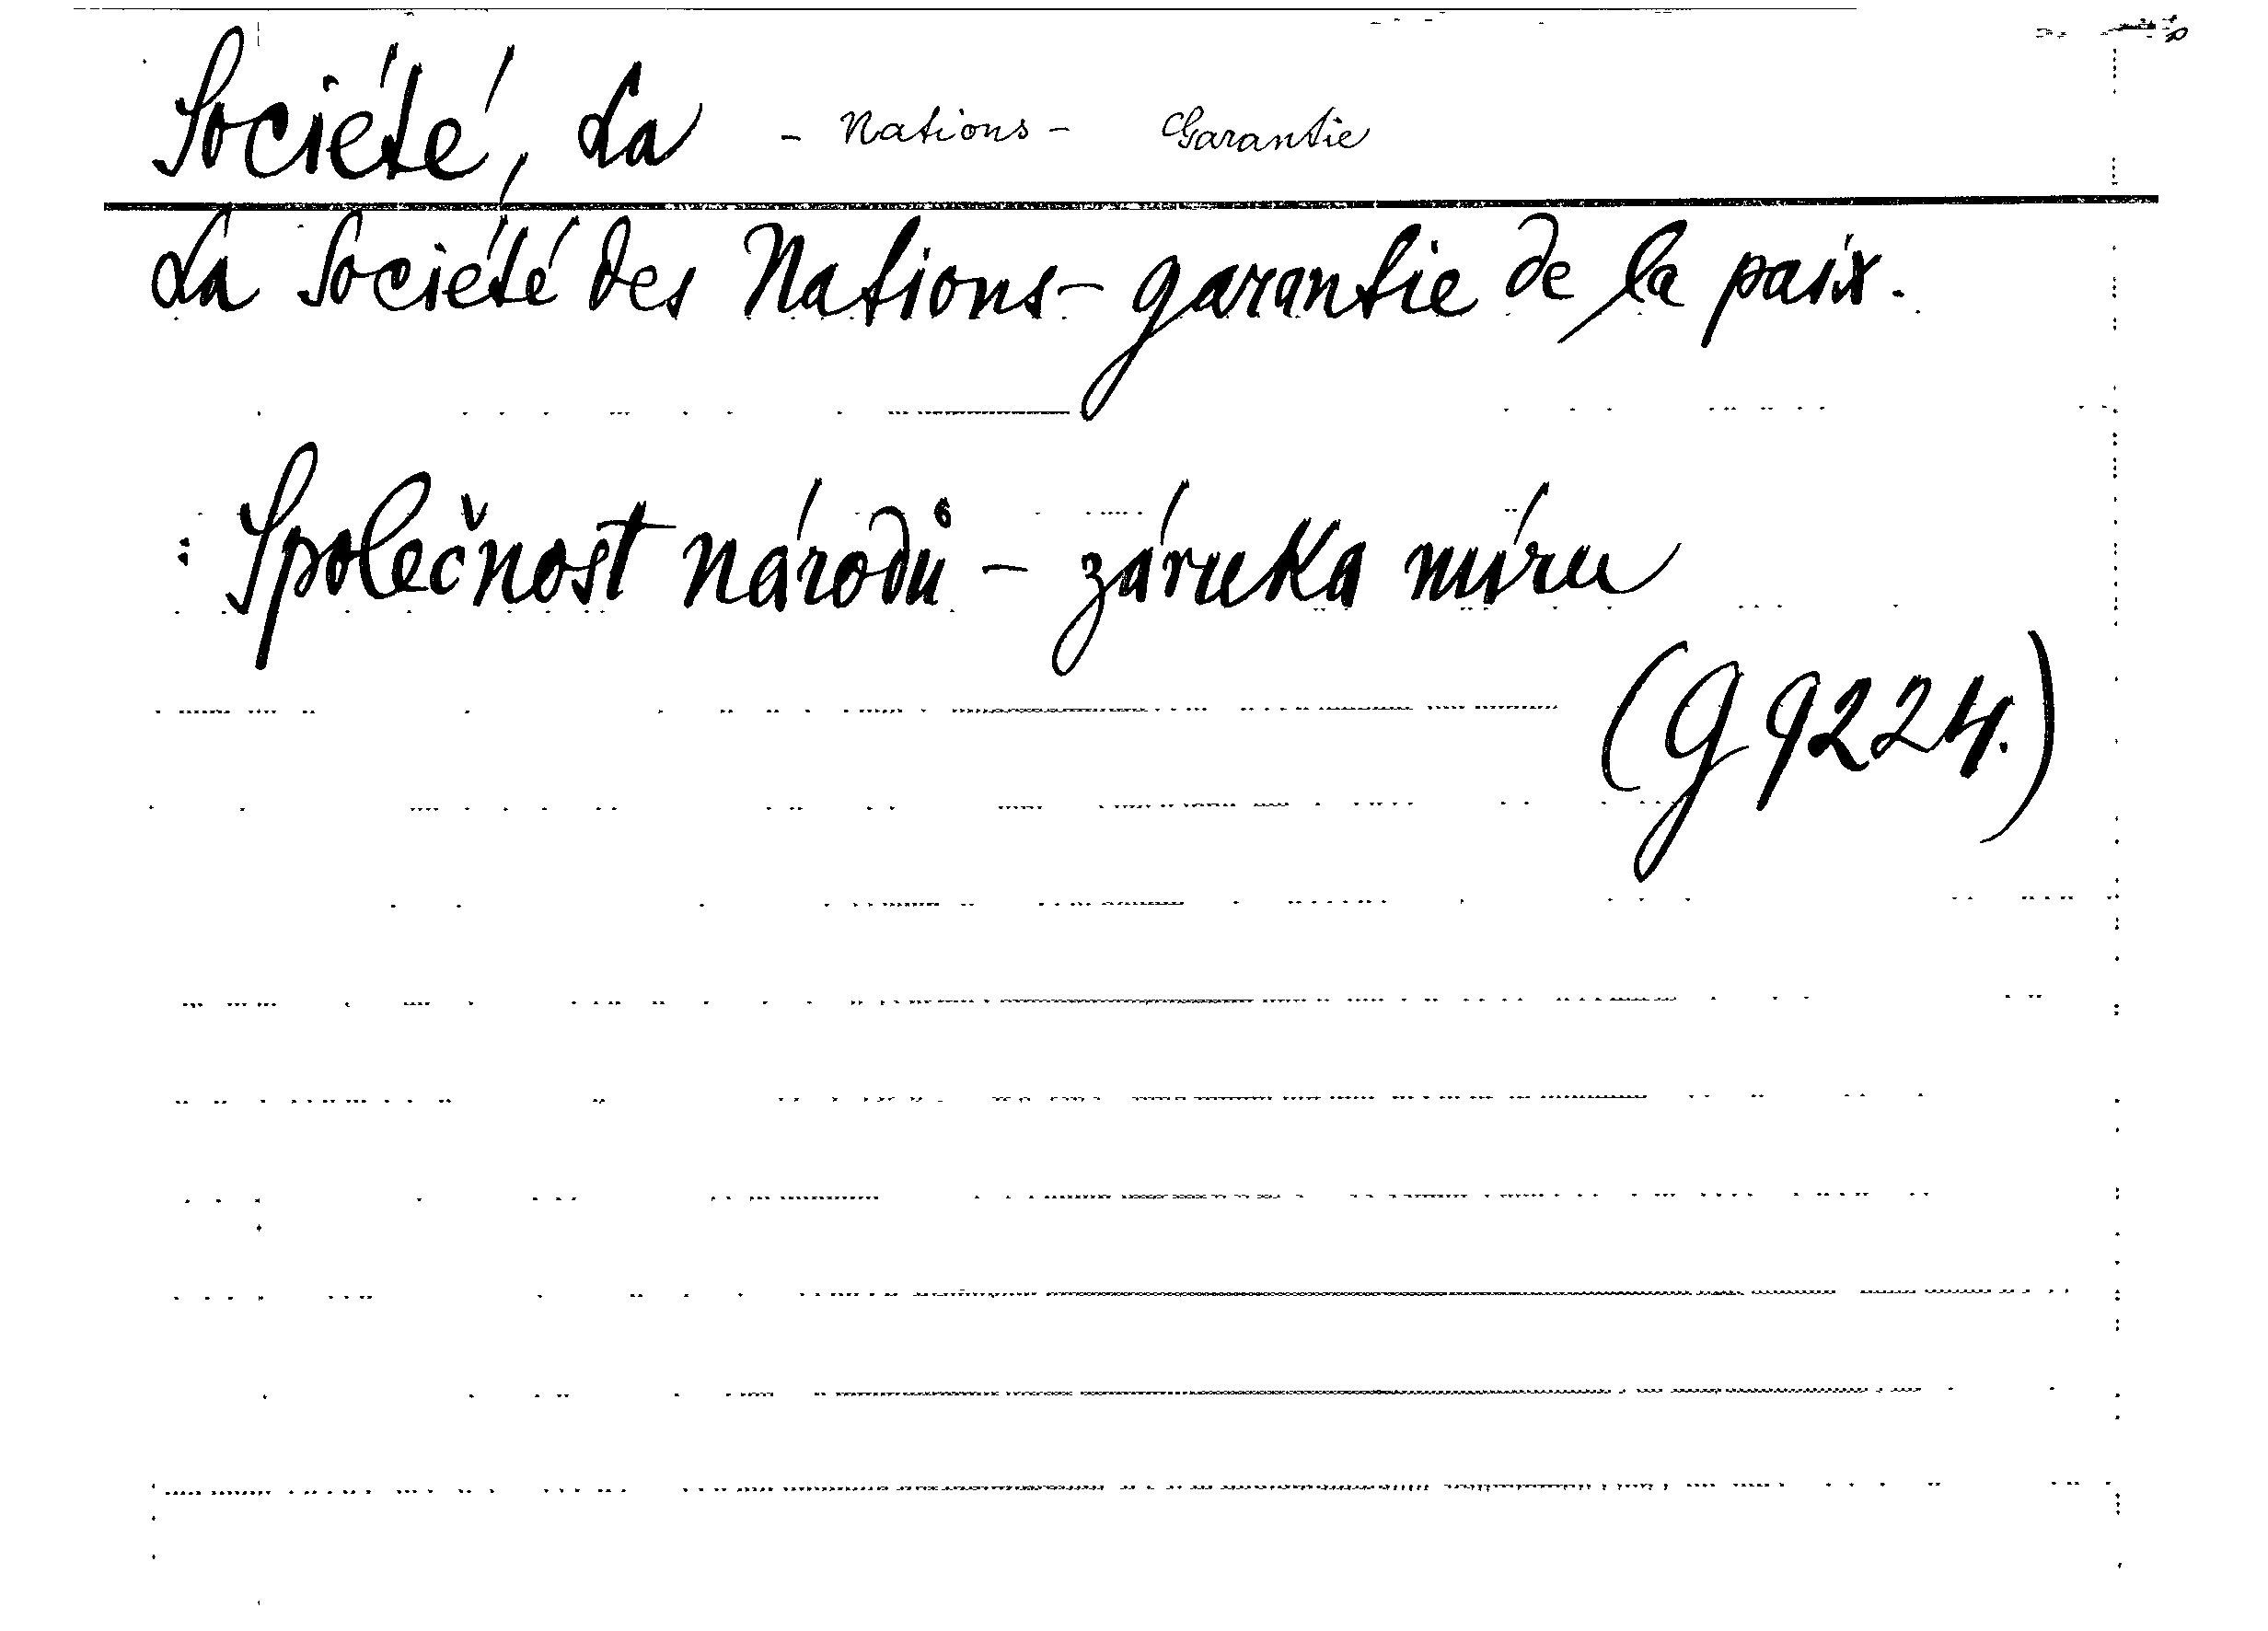 Société, La - Nations - Garantie
La Société des Nations - garantie de la paix.
: Společnost národů - záruka míru
(G 9224.)